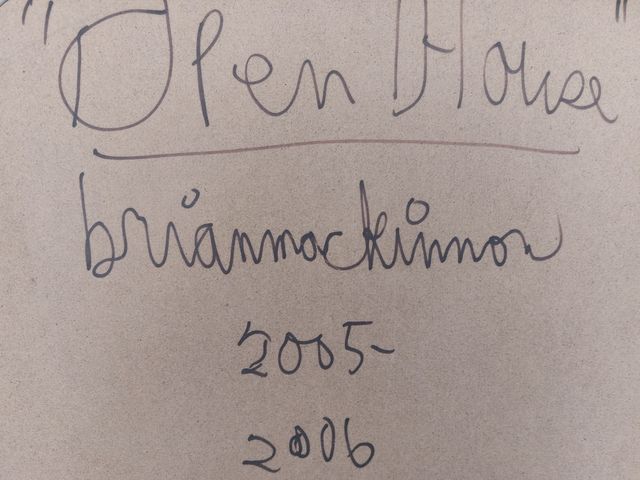 "Open House"
brianmackinnon
2005-
2006